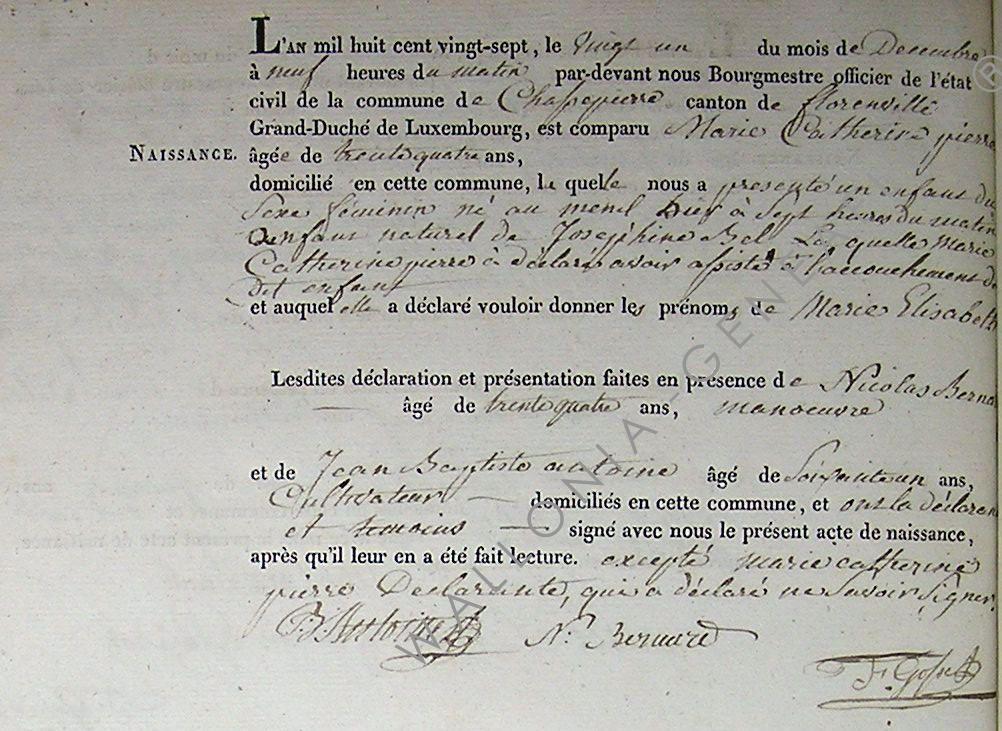 L'AN mil huit cent vingt-sept, le vingt un du mois de Decembre
à neuf heures du matin par-devant nous Bourgmestre officier de l'état
civil de la commune de Chassepierre canton de florenville
Grand-Duché de Luxembourg, est comparu Marie Catherine pierre
NAISSANCE. âgée de trente quatre ans,
domicilié en cette commune, le quelle nous a presenté un enfant du
Sexe féminin né au menil hier à Sept heures du matin
enfant naturel de Joséphine Bel La quelle Marie
Catherine pierre à déclaré avoir assisté à l'accouchement du
dit enfant
et auquel elle a déclaré vouloir donner les prénoms de Marie Elisabeth
Lesdites déclaration et présentation faites en présence de Nicolas Bernard
âgé de trente quatre ans, manoeuvre
et de Jean Baptiste antoine âgé de Soixante un ans,
Cultivateur domiciliés en cette commune, et ont la déclarante
et temoins signé avec nous le présent acte de naissance,
après qu'il leur en a été fait lecture. excepté marie catherine
pierre Déclarante, qui a déclaré ne Savoir Signer
B. Antoine N. Bernard
WALLONIA-GENE